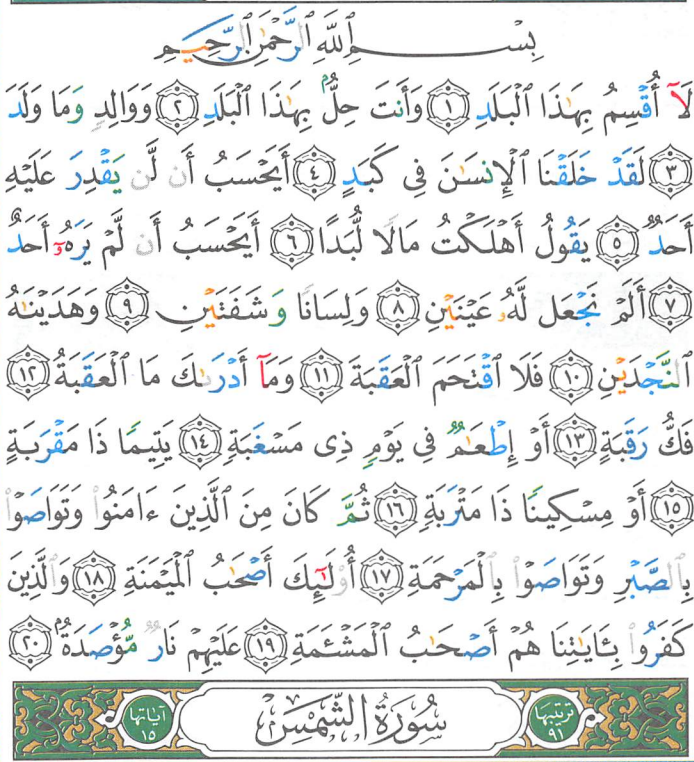 بِسْمِ ٱللَّهِ ٱلرَّحْمَٰنِ ٱلرَّحِيمِ
لَآ أُقْسِمُ بِهَٰذَا ٱلْبَلَدِ ١ وَأَنتَ حِلٌّۢ بِهَٰذَا ٱلْبَلَدِ ٢ وَوَالِدٍ وَمَا وَلَدَ
٣ لَقَدْ خَلَقْنَا ٱلْإِنسَٰنَ فِى كَبَدٍ ٤ أَيَحْسَبُ أَن لَّن يَقْدِرَ عَلَيْهِ
أَحَدٌ ٥ يَقُولُ أَهْلَكْتُ مَالًا لُّبَدًا ٦ أَيَحْسَبُ أَن لَّمْ يَرَهُۥٓ أَحَدٌ
٧ أَلَمْ نَجْعَل لَّهُۥ عَيْنَيْنِ ٨ وَلِسَانًا وَشَفَتَيْنِ ٩ وَهَدَيْنَٰهُ
ٱلنَّجْدَيْنِ ١٠ فَلَا ٱقْتَحَمَ ٱلْعَقَبَةَ ١١ وَمَآ أَدْرَىٰكَ مَا ٱلْعَقَبَةُ ١٢
فَكُّ رَقَبَةٍ ١٣ أَوْ إِطْعَٰمٌ فِى يَوْمٍ ذِى مَسْغَبَةٍ ١٤ يَتِيمًا ذَا مَقْرَبَةٍ
١٥ أَوْ مِسْكِينًا ذَا مَتْرَبَةٍ ١٦ ثُمَّ كَانَ مِنَ ٱلَّذِينَ ءَامَنُوا۟ وَتَوَاصَوْا۟
بِٱلصَّبْرِ وَتَوَاصَوْا۟ بِٱلْمَرْحَمَةِ ١٧ أُو۟لَٰٓئِكَ أَصْحَٰبُ ٱلْمَيْمَنَةِ ١٨ وَٱلَّذِينَ
كَفَرُوا۟ بِـَٔايَٰتِنَا هُمْ أَصْحَٰبُ ٱلْمَشْـَٔمَةِ ١٩ عَلَيْهِمْ نَارٌ مُّؤْصَدَةٌۢ ٢٠
ترتيبها ٩١ سُورَةُ الشَّمْسِ آياتها ١٥